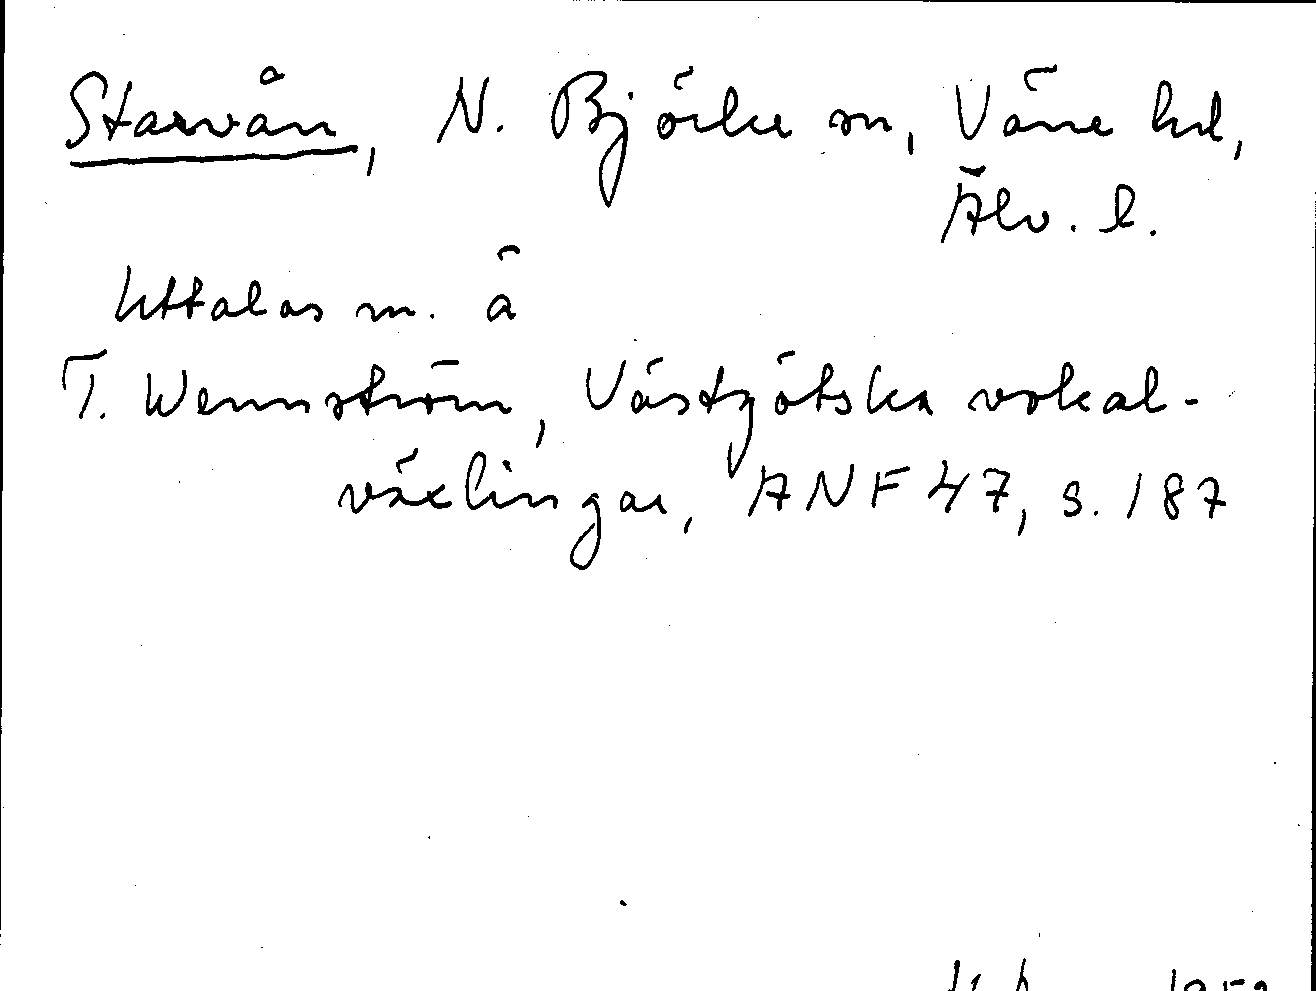 Starvån, N. Björke sn, Väne hd,
Älv. l.
Uttalas m. ä
T. Wennström, Västgötska vokal-
växlingar, ANF 47, s. 187